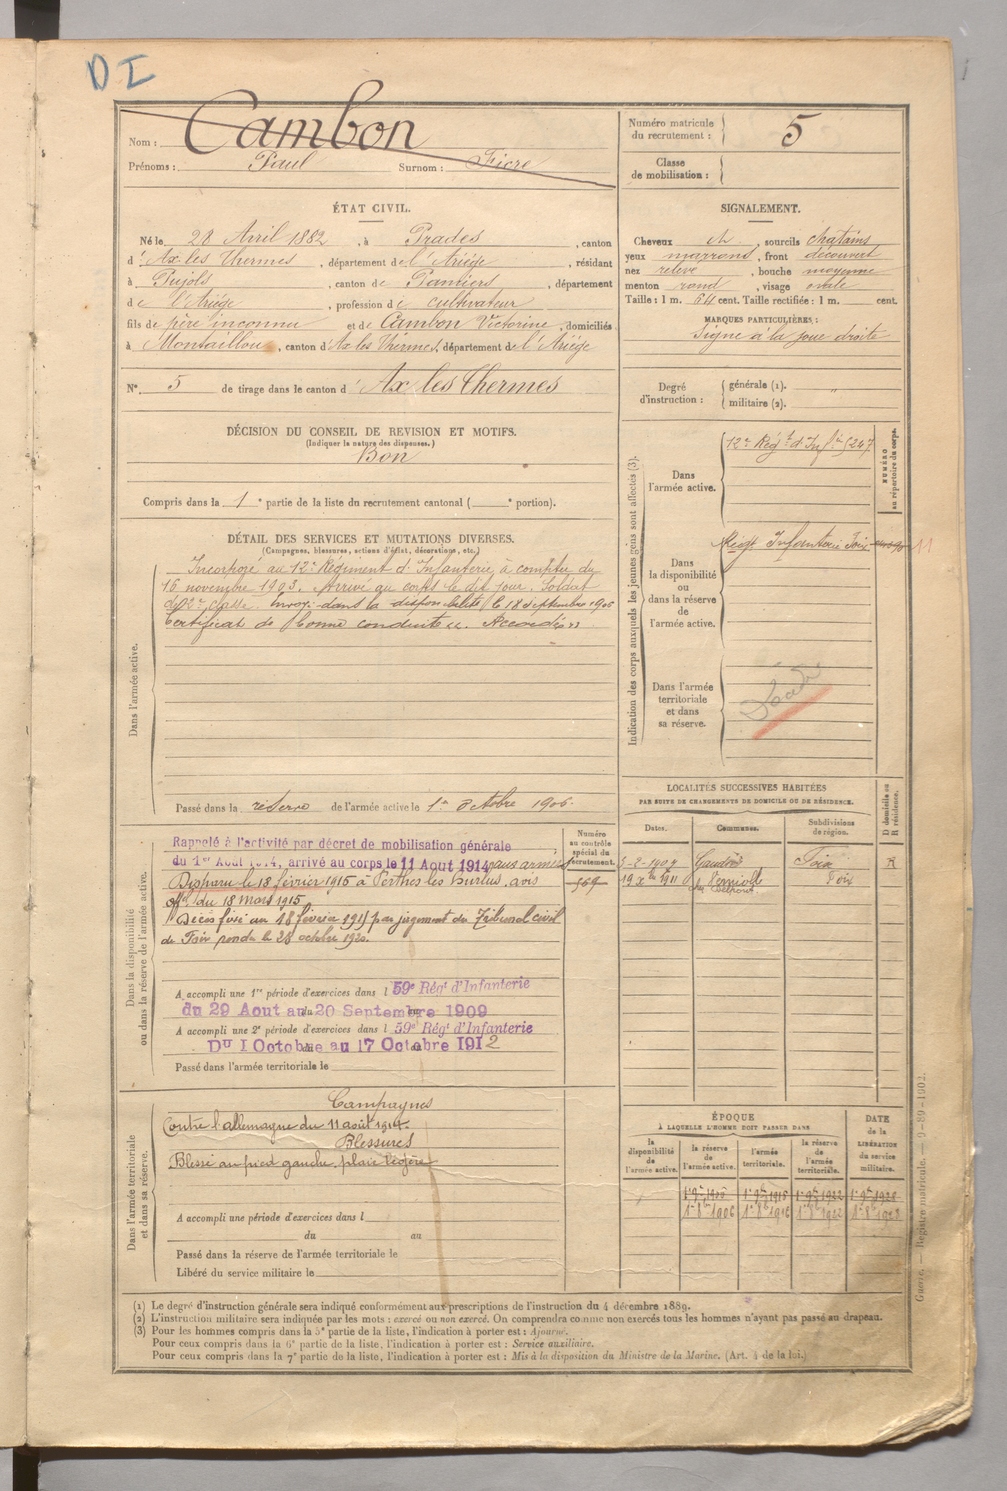 DI
Nom : Cambon
Prénoms : Paul Surnom :
Numéro matricule du recrutement : 5
Classe de mobilisation :
ÉTAT CIVIL.
Né le 28 Avril 1882, à Prades, canton
d'Ax les Thermes, département de l'Ariége, résidant
à Pujols, canton de Pamiers, département
de l'Ariége, profession de cultivateur
fils de père inconnu et de Cambon Victorine, domiciliés
à Montaillou, canton d'Ax les Thermes, département de l'Ariége
N° 5 de tirage dans le canton d'Ax les Thermes
SIGNALEMENT.
Cheveux ch, sourcils chatains
yeux marrons, front découvert
nez relevé, bouche moyenne
menton rond, visage ovale
Taille : 1 m. 64 cent. Taille rectifiée : 1 m. cent.
MARQUES PARTICULIÈRES :
Signe à la joue droite
Degré d'instruction : générale (1). "
militaire (2).
DÉCISION DU CONSEIL DE REVISION ET MOTIFS.
(Indiquer la nature des dispenses.)
Bon
Compris dans la 1e partie de la liste du recrutement cantonal ( e portion).
DÉTAIL DES SERVICES ET MUTATIONS DIVERSES.
(Campagnes, blessures, actions d'éclat, décorations, etc.)
Dans l'armée active.
Incorporé au 12e Régiment d'Infanterie, à compter du
16 novembre 1903. Arrivé au corps le dit jour. Soldat
de 2e classe. Envoyé dans la disponibilité le 18 septembre 1906
Certificat de bonne conduite "Accordé"
Passé dans la réserve de l'armée active le 1er Octobre 1906.
Indication des corps auxquels les jeunes gens sont affectés (3).
NUMÉRO au répertoire du corps.
Dans l'armée active.
12e Régt d'Inf ie 5247
Dans la disponibilité ou dans la réserve de l'armée active.
Régt Infanterie Foix 11
Dans l'armée territoriale et dans sa réserve.
Décédé
Dans la disponibilité ou dans la réserve de l'armée active.
Numéro au contrôle spécial du recrutement.
569
Rappelé à l'activité par décret de mobilisation générale
du 1er Aout 1914, arrivé au corps le 11 Aout 1914, aux armées
Disparu le 18 février 1915 à Perthes les Hurlus, avis
off. du 18 mars 1915
Décès fixé au 18 février 1915 par jugement du Tribunal civil
de Foix rendu le 28 octobre 1920.
A accompli une 1re période d'exercices dans l 59e Régt d'Infanterie
du 29 Aout au 20 Septembre 1909
A accompli une 2e période d'exercices dans l 59e Régt d'Infanterie
Du 1 Octobre au 17 Octobre 1912
Passé dans l'armée territoriale le
LOCALITÉS SUCCESSIVES HABITÉES
PAR SUITE DE CHANGEMENTS DE DOMICILE OU DE RÉSIDENCE.
D domicile ou R résidence.
Dates. Communes. Subdivisions de région.
5-2-1907 Foix R
19 Xbre 1911 Foix
Dans l'armée territoriale et dans sa réserve.
Campagnes
Contre l'allemagne du 11 août 1914.
Blessures
Blessé au pied gauche, plaie légère
A accompli une période d'exercices dans l
du au
Passé dans la réserve de l'armée territoriale le
Libéré du service militaire le
ÉPOQUE
À LAQUELLE L'HOMME DOIT PASSER DANS
DATE de la LIBÉRATION du service militaire.
la disponibilité de l'armée active. la réserve de l'armée active. l'armée territoriale. la réserve de l'armée territoriale.
1er 8bre 1906 1er 8bre 1916 1er 8bre 1922
(1) Le degré d'instruction générale sera indiqué conformément aux prescriptions de l'instruction du 4 décembre 1889.
(2) L'instruction militaire sera indiquée par les mots : exercé ou non exercé. On comprendra comme non exercés tous les hommes n'ayant pas passé au drapeau.
(3) Pour les hommes compris dans la 5e partie de la liste, l'indication à porter est : Ajourné.
Pour ceux compris dans la 6e partie de la liste, l'indication à porter est : Service auxiliaire.
Pour ceux compris dans la 7e partie de la liste, l'indication à porter est : Mis à la disposition du Ministre de la Marine. (Art. 4 de la loi.)
Guerre. — Registre matricule. — 9-89-1902.